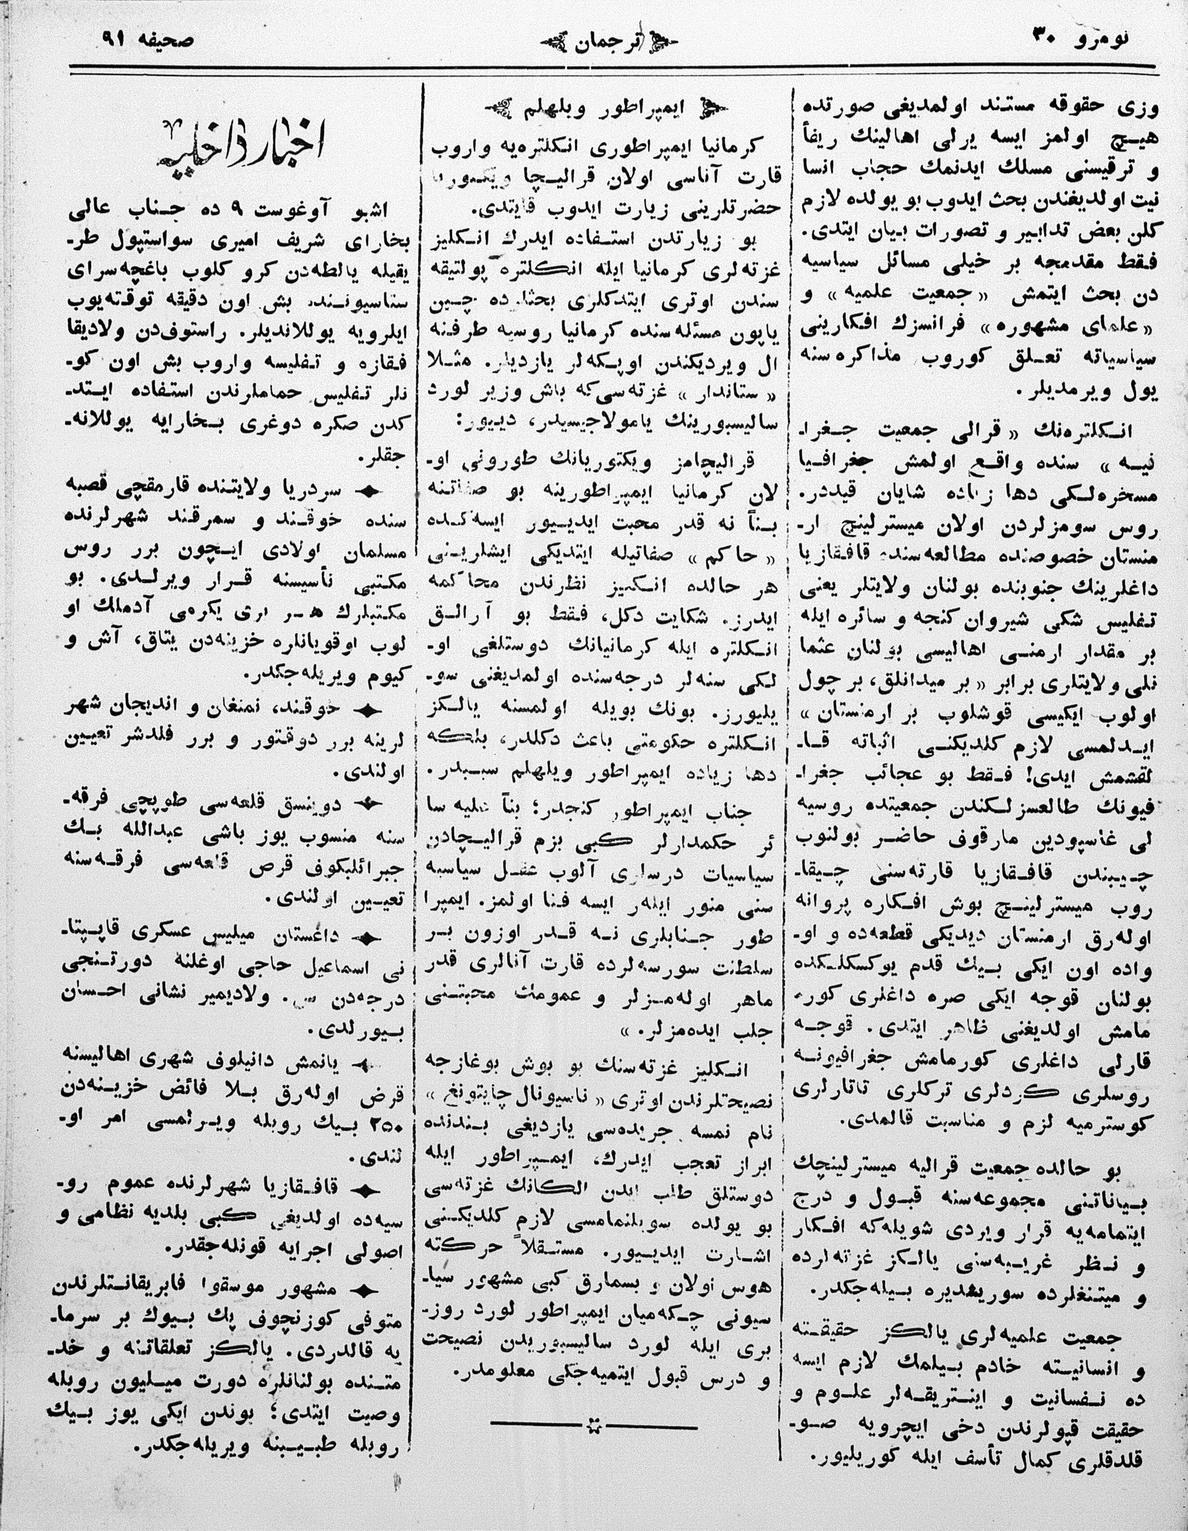 نومرو ۳۰
ترجمان
صحیفه ۹۱
وزی حقوقه مستند اولمدیغی صورتده
هیچ اولمز ایسه یرلی اهالینك ریفأ
و ترقیسنی مسلك ایدنمك حجاب انسا
نیت اولدیغندن بحث ایدوب بو یولده لازم
كلن بعض تدابیر و تصورات بیان ایتدی.
فقط مقدمجه بر خیلی مسائل سیاسیه
دن بحث ایتمش «جمعیت علمیه» و
«علمای مشهوره» فرانسزك افكارینی
سیاسیاته تعلق كوروب مذاكره سنه
یول ویرمدیلر.
انكلتره‌نك «قرالی جمعیت جغرا-
فیه» سنده واقع اولمش جغرافیا
مسخره‌لكی دها زیاده شایان قیددر.
روس سومزلردن اولان میسترلینچ ار-
منستان خصوصنده مطالعه‌سنده قافقازیا
داغلرینك جنوبنده بولنان ولایتلر یعنی
تفلیس شكی شیروان كنجه و سائره ایله
بر مقدار ارمنی اهالیسی بولنان عثما
نلی ولایتلری برابر «بر میدانلق، بر چول
اولوب ایكیسی قوشلوب بر ارمنستان»
ایدلمسی لازم كلدیكنی اثباته قا-
لقشمش ایدی! فقط بو عجائب جغرا-
فیونك طالعسزلكندن جمعیتده روسیه
لی غاسپودین مارقوف حاضر بولنوب
جیبندن قافقازیا قارته‌سنی چیقا-
روب میسترلینچ بوش افكاره پروانه
اوله‌رق ارمنستان دیدیكی قطعه‌ده و او-
واده اون ایكی بیك قدم یوكسكلكده
بولنان قوجه ایكی صره داغلری كوره
مامش اولدیغنی ظاهر ایتدی. قوجه
قارلی داغلری كورمامش جغرافیونه
روسلری كردلری تركلری تاتارلری
كوسترمیه لزم و مناسبت قالمدی.
بو حالده جمعیت قرالیه میسترلینچك
بیاناتنی مجموعه‌سنه قبول و درج
ایتمامه‌یه قرار ویردی شویله‌كه افكار
و نظر غریبه‌سنی یالكز غزته‌لرده
و میتنغلرده سوریغدیره بیله‌جكدر.
جمعیت علمیه‌لری یالكز حقیقته
و انسانیته خادم بیلمك لازم ایسه
ده نفسانیت و اینتریقه‌لر علوم و
حقیقت قپولرندن دخی ایچرویه صو-
قلدقلری كمال تأسف ایله كوریلیور.
ایمپراطور ویلهلم
كرمانیا ایمپراطوری انكلتره‌یه واروب
قارت آناسی اولان قرالیچا ویكتوریا
حضرتلرینی زیارت ایدوب قایتدی.
بو زیارتدن استفاده ایدرك انكلیز
غزته‌لری كرمانیا ایله انكلتره پولتیقه
سندن اوتری ایتدكلری بحثلرده چین
یاپون مسئله‌سنده كرمانیا روسیه طرفنه
ال ویردیكندن اوپكه‌لر یازدیلر. مثلا
«ستاندار» غزته‌سی‌كه باش وزیر لورد
سالیسبورینك یامولاجیسیدر، دییور:
قرالیچامز ویكتوریانك طورونی او-
لان كرمانیا ایمپراطورینه بو صفاتنه
بناً نه قدر محبت ایدییور ایسه‌كده
«حاكم» صفاتیله ایتدیكی ایشلرینی
هر حالده انكلیز نظرندن محاكمه
ایدرز. شكایت دكل، فقط بو آرالق
انكلتره ایله كرمانیانك دوستلغی او-
لكی سنه‌لر درجه‌سنده اولمدیغنی سو-
یلیورز. بونك بویله اولمسنه یالكز
انكلتره حكومتی باعث دكلدر، بلكه
دها زیاده ایمپراطور ویلهلم سببدر.
جناب ایمپراطور كنجدر؛ بناً علیه سا
ئر حكمدارلر كبی بزم قرالیچادن
سیاسیات درسلری آلوب عقل سیاسیه
سنی منور ایلر ایسه فنا اولمز. ایمپرا
طور جنابلری نه قدر اوزون بر
سلطنت سورسه‌لرده قارت آنالری قدر
ماهر اوله‌مزلر و عمومك محبتنی
جلب ایده‌مزلر.»
انكلیز غزته‌سنك بو بوش بوغازجه
نصیحتلرندن اوتری «ناسیونال چایتونغ»
نام نمسه جریده‌سی یازدیغی بندنده
ابراز تعجب ایدرك، ایمپراطور ایله
دوستلق طلب ایدن الكانك غزته‌سی
بو یولده سویلنمامسی لازم كلدیكنی
اشارت ایدییور. مستقلاً حركته
هوس اولان و بسمارق كبی مشهور سیا-
سیونی چكه‌میان ایمپراطور لورد روز-
بری ایله لورد سالیسبوریدن نصیحت
و درس قبول ایتمیه‌جكی معلومدر.
اخبار داخلیه
اشبو آوغوست ۹ ده جناب عالی
بخارای شریف امیری سواستپول طر-
یقیله یالطه‌دن كرو كلوب باغچه‌سرای
ستاسیونند، بش اون دقیقه توقته‌یوب
ایلرویه یوللاندیلر. راستوف‌دن ولادیقا
فقازه و تفلیسه واروب بش اون كو-
نلر تفلیس حماملرندن استفاده ایتد-
كدن صكره دوغری بخارایه یوللانه-
جقلر.
سردریا ولایتنده قارمقچی قصبه
سنده خوقند و سمرقند شهرلرنده
مسلمان اولادی ایچون برر روس
مكتبی تأسیسنه قرار ویرلدی. بو
مكتبلرك هر بری یكرمی آدملك او
لوب اوقویانلره خزینه‌دن یتاق، آش و
كیوم ویریله‌جكدر.
خوقند، نمنغان و اندیجان شهر
لرینه برر دوقتور و برر فلدشر تعیین
اولندی.
دوینسق قلعه‌سی طوپچی فرقه-
سنه منسوب یوز باشی عبدالله بك
جبرائلبكوف قرص قلعه‌سی فرقه‌سنه
تعیین اولندی.
داغستان میلیس عسكری قاپیتا-
نی اسماعیل حاجی اوغلنه دورتنجی
درجه‌دن س. ولادیمیر نشانی احسان
بیورلدی.
یانمش دانیلوف شهری اهالیسنه
قرض اوله‌رق بلا فائض خزینه‌دن
۲۵۰ بیك روبله ویرلمسی امر او-
لندی.
قافقازیا شهرلرنده عموم رو-
سیه‌ده اولدیغی كبی بلدیه نظامی و
اصولی اجرایه قونله‌جقدر.
مشهور موسقوا فابریقانتلرندن
متوفی كوزنچوف پك بیوك بر سرما-
یه قالدردی. یالكز تعلقاتنه و خد-
متنده بولنانلره دورت میلیون روبله
وصیت ایتدی؛ بوندن ایكی یوز بیك
روبله طبیبنه ویریله‌جكدر.